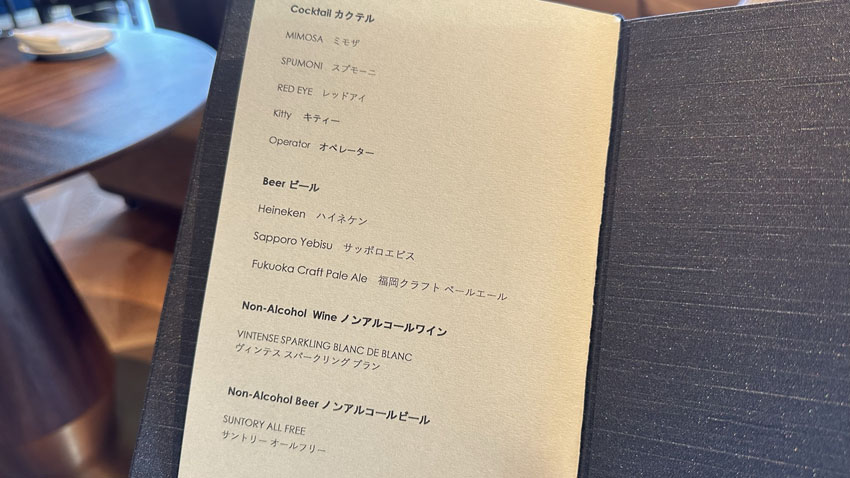 Cocktail カクテル
MIMOSA ミモザ
SPUMONI スプモーニ
RED EYE レッドアイ
Kitty キティー
Operator オペレーター
Beer ビール
Heineken ハイネケン
Sapporo Yebisu サッポロエビス
Fukuoka Craft Pale Ale 福岡クラフト ペールエール
Non-Alcohol Wine ノンアルコールワイン
VINTENSE SPARKLING BLANC DE BLANC
ヴィンテス スパークリング ブラン
Non-Alcohol Beer ノンアルコールビール
SUNTORY ALL FREE
サントリー オールフリー